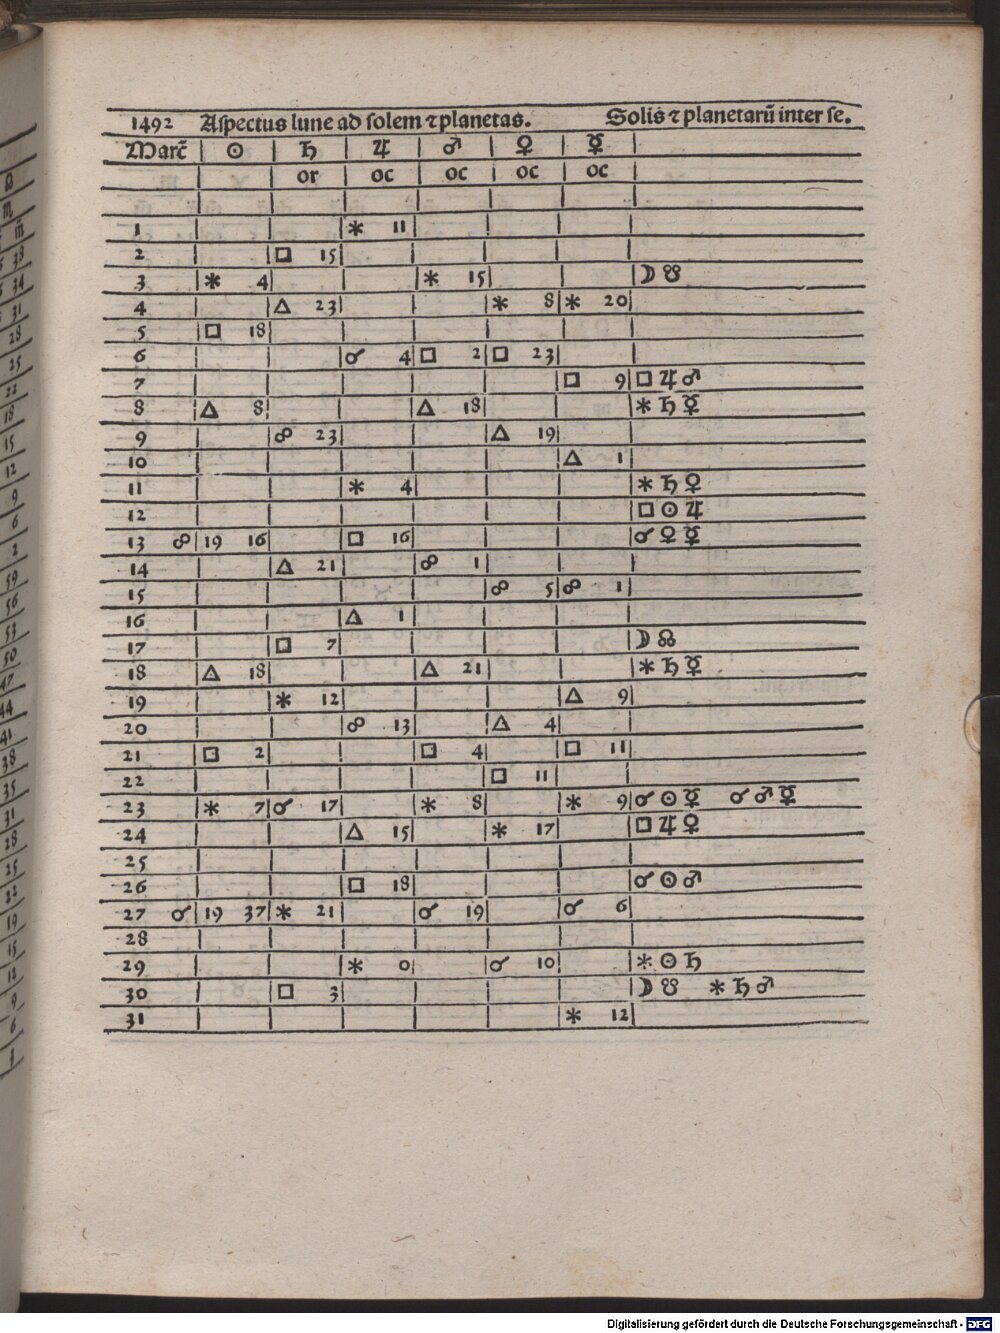 1492 Aspectus lune ad solem ⁊ planetas. Solis ⁊ planetarũ inter se.
Marc̃ ☉ ♄ ♃ ♂ ♀ ☿
or oc oc oc oc
1 ⚹ 11
2 □ 15
3 ⚹ 4 ⚹ 15 ☽ ☋
4 △ 23 ⚹ 8 ⚹ 20
5 □ 18
6 ☌ 4 □ 2 □ 23
7 □ 9 □ ♃ ♂
8 △ 8 △ 18 ⚹ ♄ ☿
9 ☍ 23 △ 19
10 △ 1
11 ⚹ 4 ⚹ ♄ ♀
12 □ ☉ ♃
13 ☍ 19 16 □ 16 ☌ ♀ ☿
14 △ 21 ☍ 1
15 ☍ 5 ☍ 1
16 △ 1
17 □ 7 ☽ ☊
18 △ 18 △ 21 ⚹ ♄ ☿
19 ⚹ 12 △ 9
20 ☍ 13 △ 4
21 □ 2 □ 4 □ 11
22 □ 11
23 ⚹ 7 ☌ 17 ⚹ 8 ⚹ 9 ☌ ☉ ☿ ☌ ♂ ☿
24 △ 15 ⚹ 17 □ ♃ ♀
25
26 □ 18 ☌ ☉ ♂
27 ☌ 19 37 ⚹ 21 ☌ 19 ☌ 6
28
29 ⚹ 0 ☌ 10 ⚹ ☉ ♄
30 □ 3 ☽ ☋ ⚹ ♄ ♂
31 ⚹ 12
♌
♏
♏̃
38
34
31
28
25
22
18
15
12
9
6
2
59
56
53
50
47
44
41
38
35
31
28
25
22
19
15
12
9
6
Digitalisierung gefördert durch die Deutsche Forschungsgemeinschaft - DFG